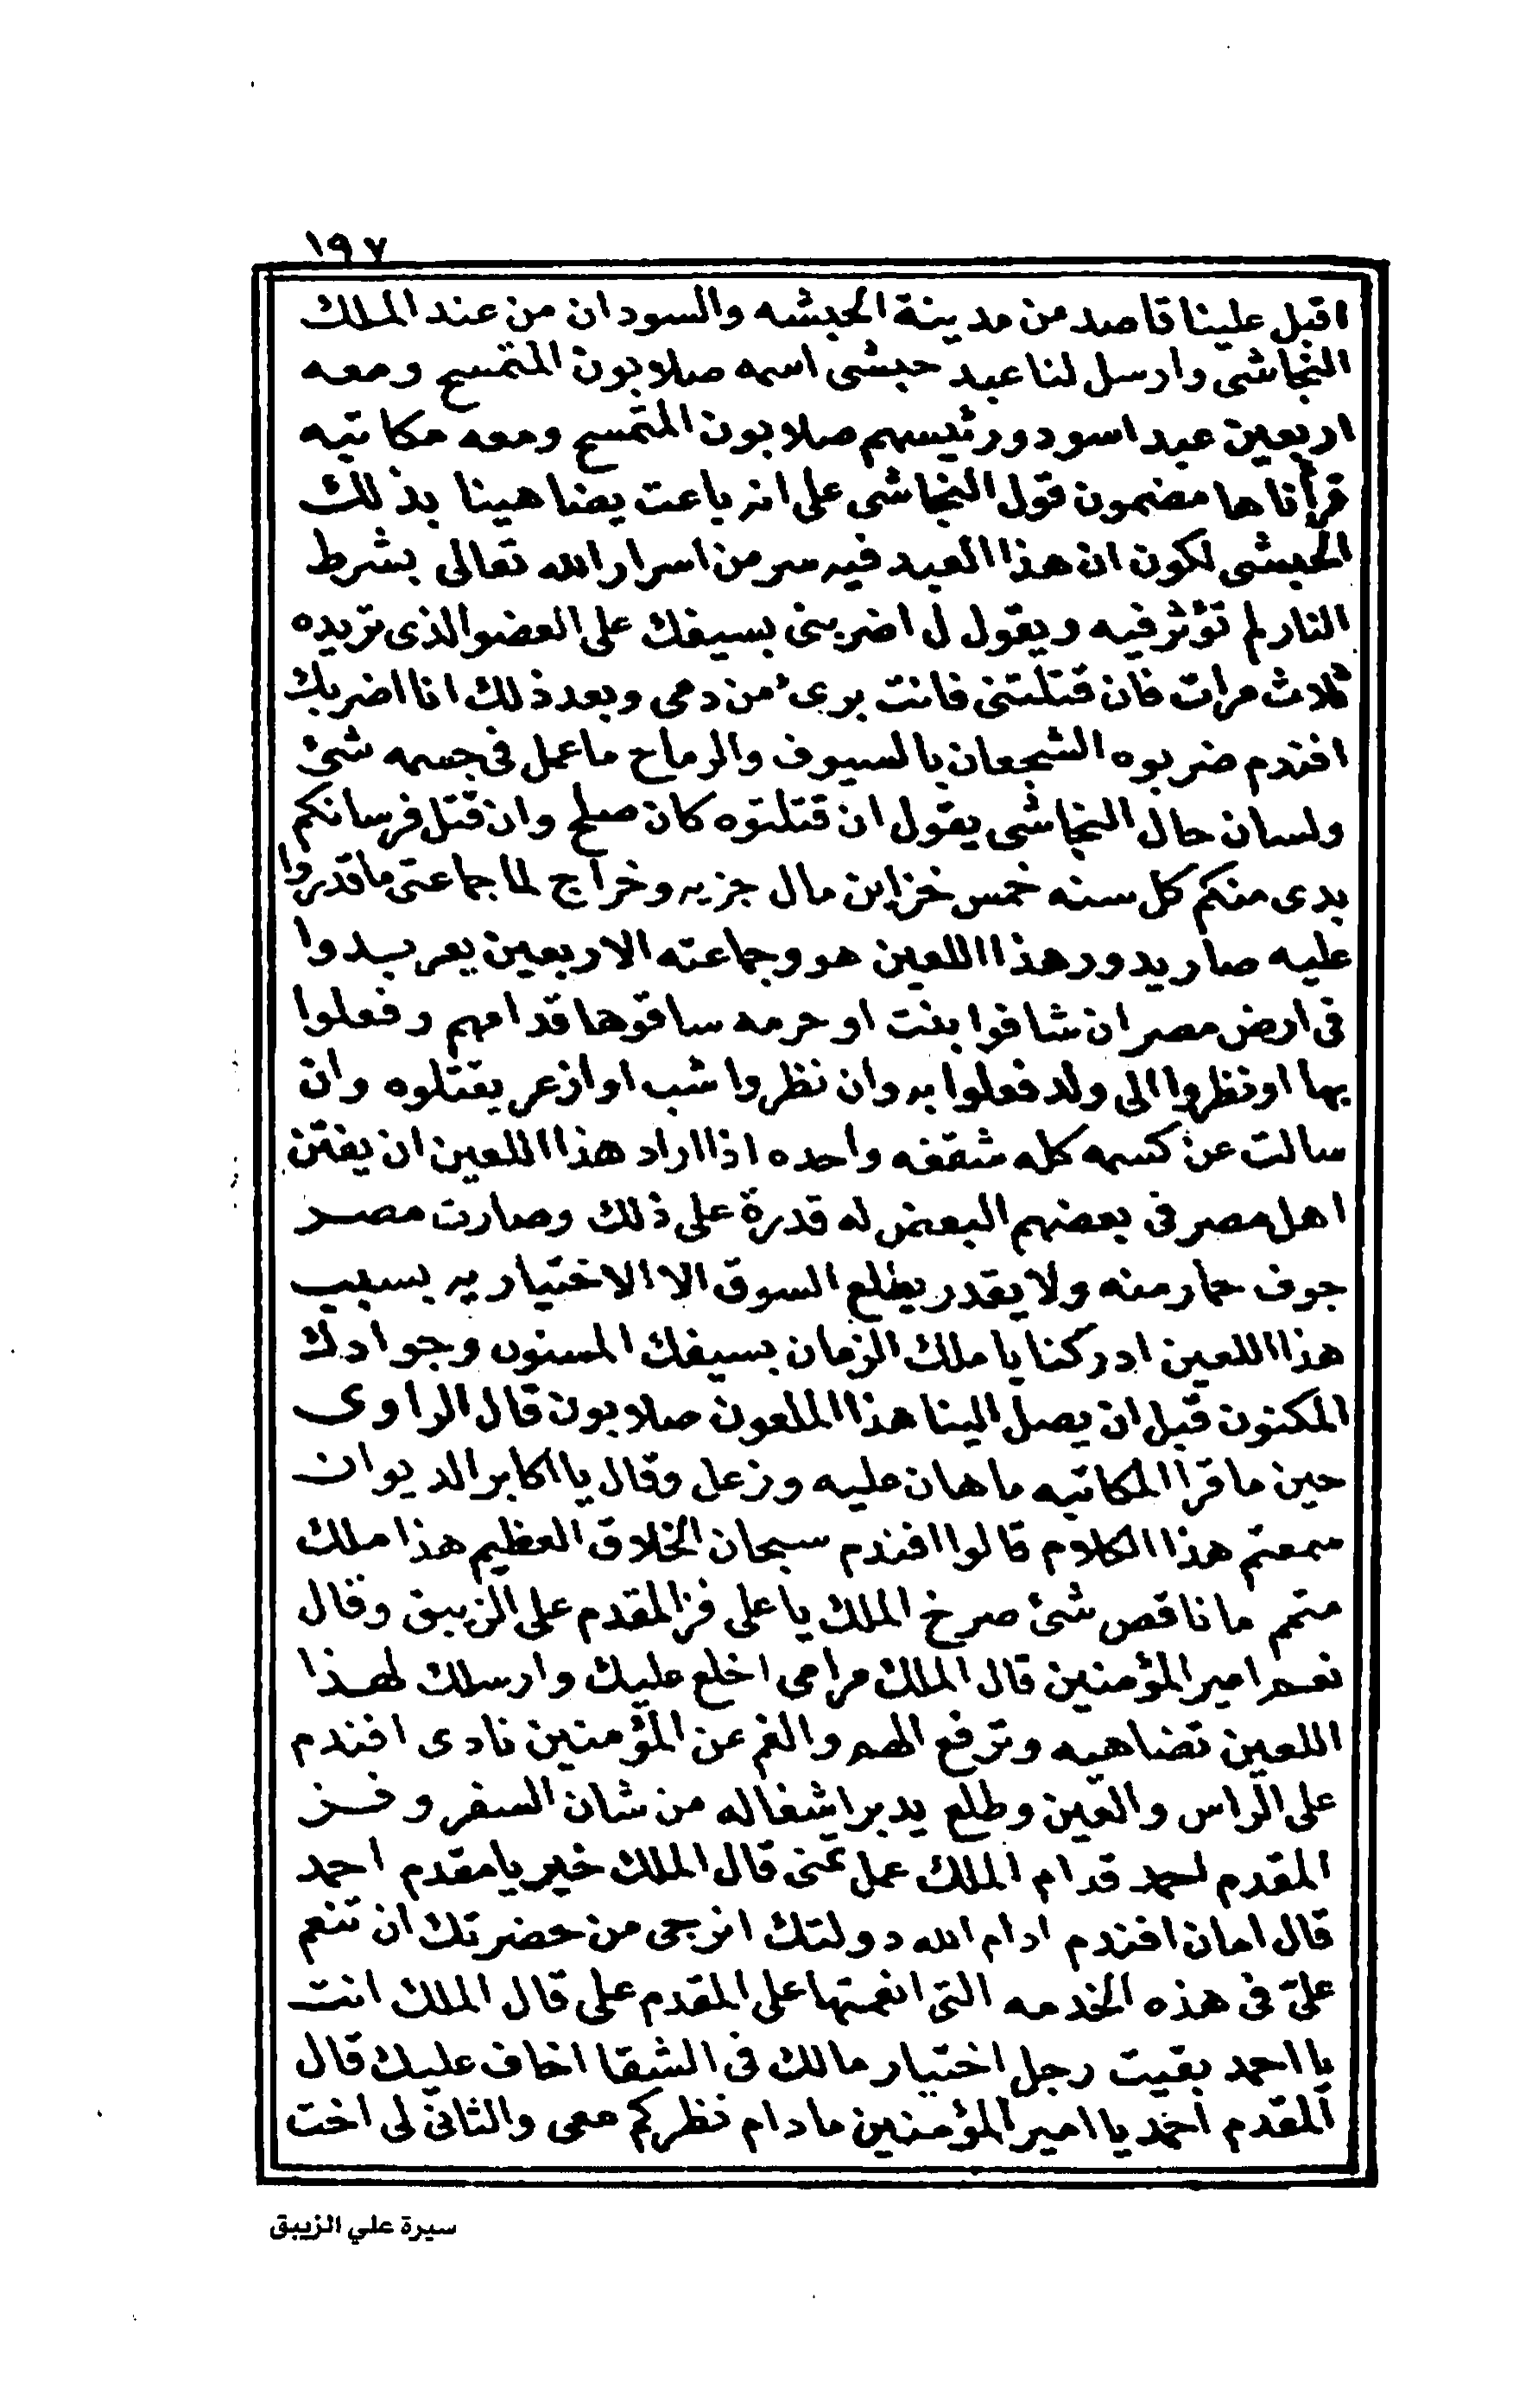 ١٩٧
اقبل علينا قاصد من مدينة الحبشه والسودان من عند الملك
النجاشى وارسل لنا عبد حبشى اسمه صلابون المتمسح ومعه
اربعين عبد اسود ورئيسهم صلابون المتمسح ومعه مكاتبه
قرأناها مضمون قول النجاشى على انه باعت يضاهينا بذلك
الحبشى لكون ان هذا العبد فيه سر من اسرار الله تعالى بشرط
النار لم تؤثر فيه ويقول ل اضربنى بسيفك على العضو الذى تريده
ثلاث مرات فان قتلتنى فانت برىء من دمى وبعد ذلك انا اضربك
افندم ضربوه الشجعان بالسيوف والرماح ما عمل فى جسمه شئ
ولسان حال النجاشى يقول ان قتلتوه كان صلح وان قتل فرسانكم
بدى منكم كل سنه خمس خزاين مال جزيه وخراج لما جماعتى ما قدروا
عليه صار يدور هذا اللعين هو وجماعته الاربعين يعربدوا
فى ارض مصر ان شافوا بنت او حرمه ساقوها قدامهم وفعلوا
بها او نظروا الى ولد فعلوا به وان نظروا شب او ازعر يقتلوه وان
سالت عن كسمه كله شقفه واحده اذا اراد هذا اللعين ان يفتن
اهل مصر فى بعضهم البعض له قدرة على ذلك وصارت مصر
جوف حمار منه ولا يقدر يطلع السوق الا الاختياريه بسبب
هذا اللعين ادركنا يا ملك الزمان بسيفك المسنون وجوادك
المكنون قبل ان يصل الينا هذا الملعون صلابون قال الراوى
حين ما قرا المكاتبه ما هان عليه وزعل وقال يا اكابر الديوان
سمعتم هذا الكلام قالوا افندم سبحان الخلاق العظيم هذا ملك
متمم ما ناقص شئ صرخ الملك يا على فز المقدم على الزيبق وقال
نعم امير المؤمنين قال الملك مرامى اخلع عليك وارسلك لهذا
اللعين تضاهيه وترفع الهم والغم عن المؤمنين نادى افندم
على الراس والعين وطلع يدبر اشغاله من شان السفر وفز
المقدم احمد قدام الملك عمل تمنى قال الملك خير يا مقدم احمد
قال امان افندم ادام الله دولتك انرجى من حضرتك ان تنعم
علىّ فى هذه الخدمه التى انعمتها على المقدم على قال الملك انت
يا احمد بقيت رجل اختيار مالك فى الشقا اخاف عليك قال
المقدم احمد يا امير المؤمنين ما دام نظركم معى والثانى لى اخت
سيرة علي الزيبق